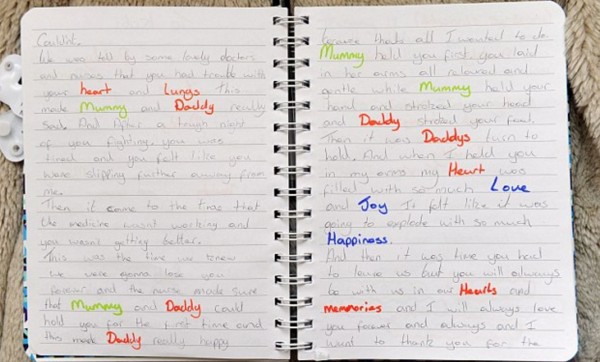 Couldn't.
We was told by some lovely doctors
and nurses that you had trouble with
your heart and Lungs This
made Mummy and Daddy really
sad. And After a tough night
of you fighting. you was
tired and you felt like you
were slipping further away from
me.
Then it came to the time that
the medicine wasnt working and
you wasnt getting better.
This was the time we knew
we were gonna lose you
forever and the nurse made sure
that Mummy and Daddy could
hold you for the first time and
this made Daddy really happy
because thats all I wanted to do.
Mummy held you first. you laid
in her arms all relaxed and
gentle while Mummy held your
hand and stroked your head
and Daddy stroked your feet.
Then it was Daddys turn to
hold. And when I held you
in my arms my Heart was
filled with so much Love
and Joy I felt like i was
going to explode with so much
Happiness.
And then it was time you had
to leave us but you will always
be with us in our Hearts and
memories and I will always love
you forever and always and I
want to thank you for the